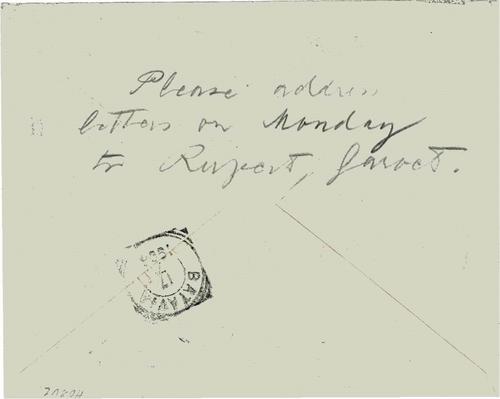 Please address
letters on Monday
to Rupert, Garoet.
BATAVIA